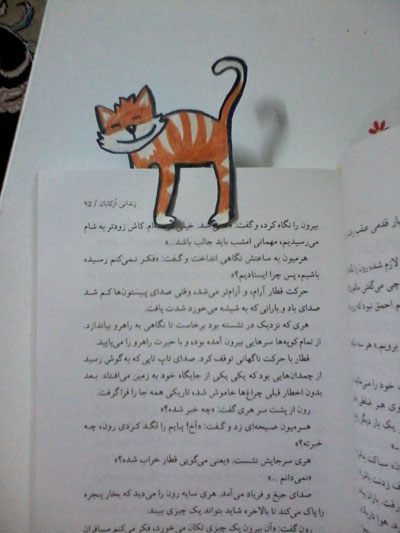 زندانی آزکابان / ۹۵
بیرون را نگاه کرد، و گفت: شد. کاش زودتر به شام
می‌رسیدیم، مهمانی امشب باید جالب باشد...»
هرمیون به ساعتش نگاهی انداخت و گفت: «فکر نمی‌کنم رسیده
باشیم، پس چرا ایستادیم؟»
حرکت قطار آرام، و آرام‌تر می‌شد، وقتی صدای پیستون‌ها کم شد
صدای باد و بارانی که به شیشه می‌خورد شدت یافت.
هری که نزدیک در نشسته بود برخاست تا نگاهی به راهرو بیاندازد.
از تمام کوپه‌ها سرهایی بیرون آمده بود، و با حیرت راهرو را می‌پایید.
قطار با حرکت ناگهانی توقف کرد. صدای تاپ تاپی که به گوش رسید
از چمدان‌هایی بود که یکی یکی از جایگاه خود به زمین می‌افتاد. بعد
بدون اخطار قبلی چراغ‌ها خاموش شد، تاریکی همه جا را فرا گرفت.
رون از پشت سر هری گفت: «چه خبر شده؟»
هرمیون صیحه‌ای زد و گفت: «آخ! پایم را لگد کردی رون، چه
خبرته؟»
هری سرجایش نشست. «یعنی می‌گویی قطار خراب شده؟»
«نمی‌دانم ...»
صدای جیغ و فریاد می‌آمد. هری سایه رون را می‌دید که بخار پنجره
را پاک می‌کند تا بالاخره شاید بتواند یک چیزی ببیند.
رون گفت: «آن بیرون یک چیزی تکان می‌خورد، فکر می‌کنم مسافران